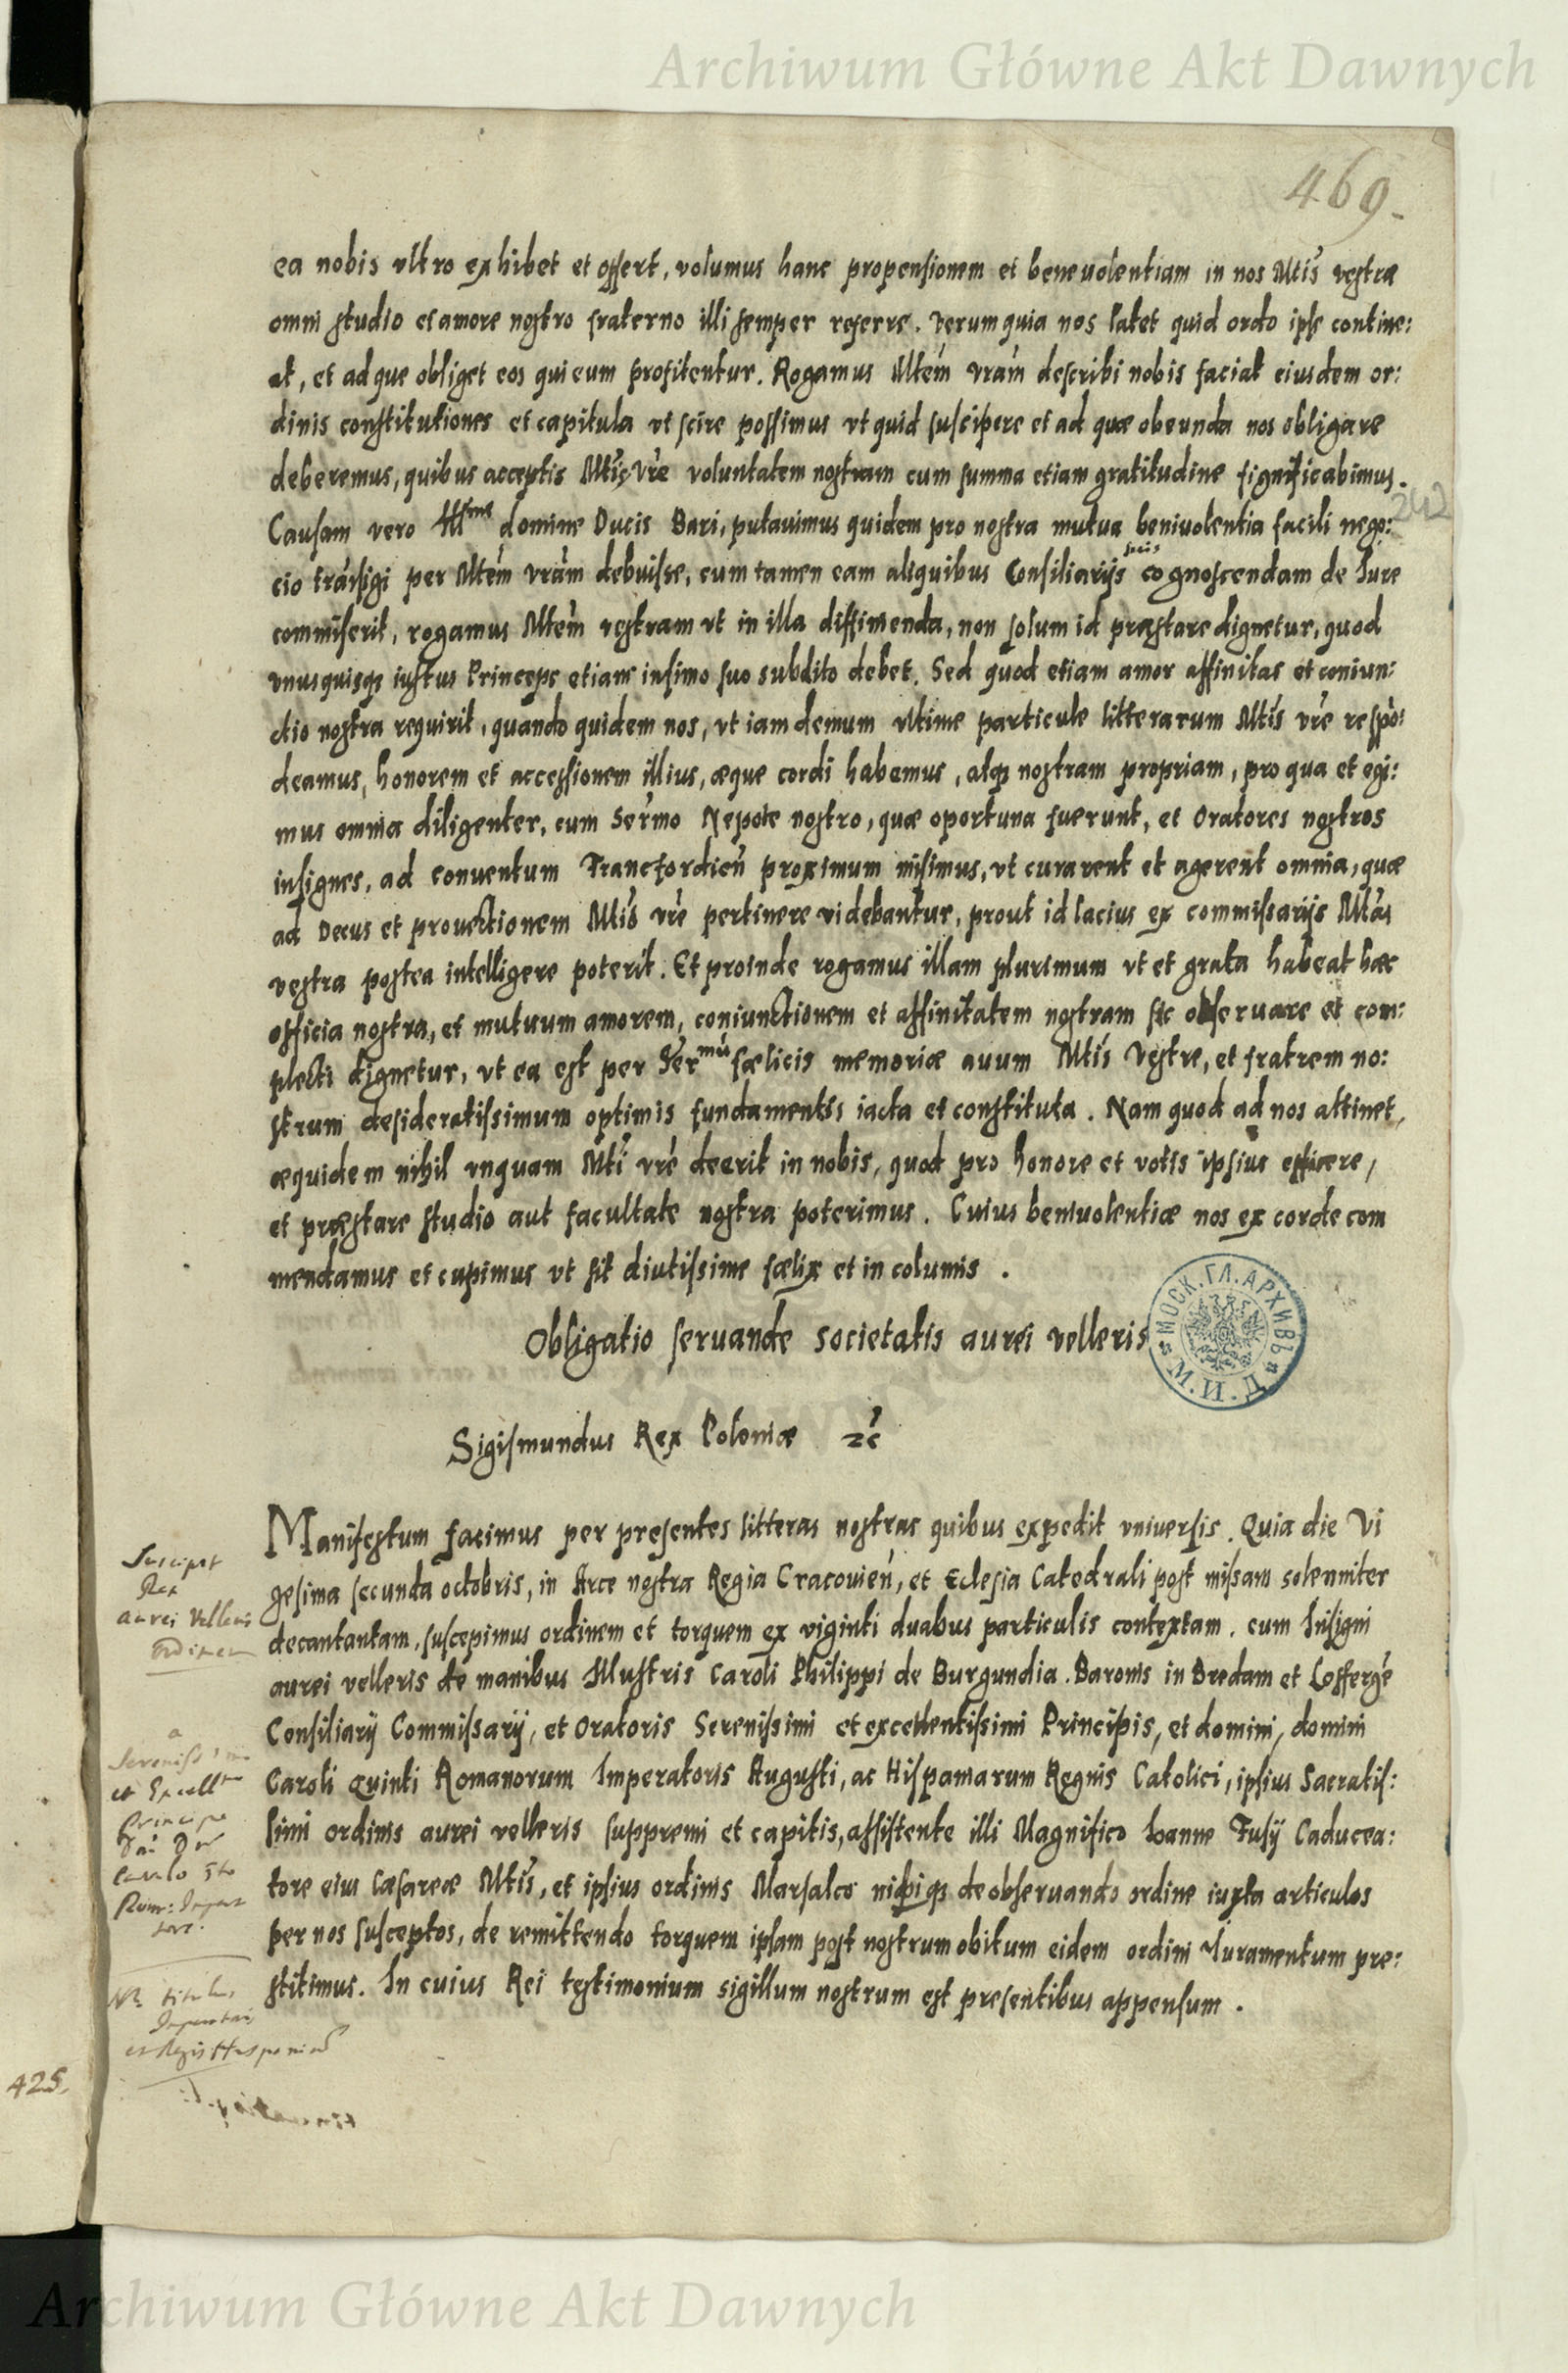 Archiwum Główne Akt Dawnych
469.
ea nobis vltro exhibet et offert, volumus hanc propensionem et beneuolentiam in nos Mtis vestræ
omni studio et amore nostro fraterno illi semper referre. Verum quia nos latet quid ordo ipse contine:
at, et ad que obliget eos qui eum profitentur. Rogamus Mtem vram describi nobis faciat eiusdem or:
dinis constitutiones et capitula vt scire possimus vt quid suscipere et ad quæ obeunda nos obligare
deberemus, quibus acceptis Mtis vre voluntatem nostram cum summa etiam gratitudine significabimus.
242
Causam vero Illsime domine Ducis Bari, putauimus quidem pro nostra mutua beniuolentia facili nego:
cio trasigi per Mtem vram debuisse, cum tamen eam aliquibus Consiliarijs suis cognoscendam de Iure
commiserit, rogamus Mtem vestram vt in illa diffimenda, non solum id præstare dignetur, quod
vnusquisqz iustus Princeps etiam infimo suo subdito debet. Sed quod etiam amor affinitas et coniun:
ctio nostra requirit, quando quidem nos, vt iam demum vltime particule litterarum Mtis vre respo:
deamus, honorem et accessionem illius, æque cordi habemus, atqz nostram propriam, pro qua et egi:
mus omnia diligenter, cum Sermo Nepote nostro, quæ oportuna fuerunt, et Oratores nostros
insignes, ad conuentum Francfordien proximum misimus, vt curarent et agerent omnia, quæ
ad Decus et prouectionem Mtis vre pertinere videbantur, prout id lacius ex commissarijs Mtas
vestra postea intelligere poterit. Et proinde rogamus illam plurimum vt et grata habeat hæc
officia nostra, et mutuum amorem, coniunctionem et affinitatem nostram sic obseruare et com:
plecti dignetur, vt ea est per Sermu fælicis memoriæ auum Mtis Vestre, et fratrem no:
strum desideratissimum optimis fundamentis iacta et constituta. Nam quod ad nos attinet,
æquidem nihil vnquam Mti vre deerit in nobis, quod pro honore et votis ipsius efficere,
et præstare studio aut facultate nostra poterimus. Cuius beniuolentiæ nos ex corde com
mendamus et cupimus vt sit diutissime fælix et in columis.
Obligatio seruande societatis aurei velleris
МОСК. ГЛ. АРХИВЪ М.И.Д.
Sigismundus Rex Poloniæ zc
Manifestum facimus per presentes litteras nostras quibus expedit vniuersis. Quia die Vi
gesima secunda octobris, in Arce nostra Regia Cracouien, et Eclesia Catedrali post missam solenniter
decantantam, suscepimus ordinem et torquem ex viginti duabus particulis contextam. cum Insigni
aurei velleris de manibus Illustris Caroli Philippi de Burgundia. Baronis in Bredam et Lofferge
Consiliarij Commissarij, et Oratoris Serenissimi et excellentissimi Principis, et domini, domini
Caroli Quinti Romanorum Imperatoris Augusti, ac Hispaniarum Regnis Catolici, ipsius Sacratis:
simi ordinis aurei velleris suppremi et capitis, assistente illi Magnifico Ioanne Fusij Caducea:
tore eius Cæsareæ Mtis, et ipsius ordinis Marsalco de obseruando ordine iuxta articulos
per nos susceptos, de remittendo torquem ipsam post nostrum obitum eidem ordini Iuramentum pre:
stitimus. In cuius Rei testimonium sigillum nostrum est presentibus appensum.
Suscipit
Rex
aurei Velleris
ordinem
a
Sereniss
et Excell
Principe
Carolo 5to
Rom: Impera
tore.
titulus
Imperatoris
et Regis Hispaniar
425.
Archiwum Główne Akt Dawnych